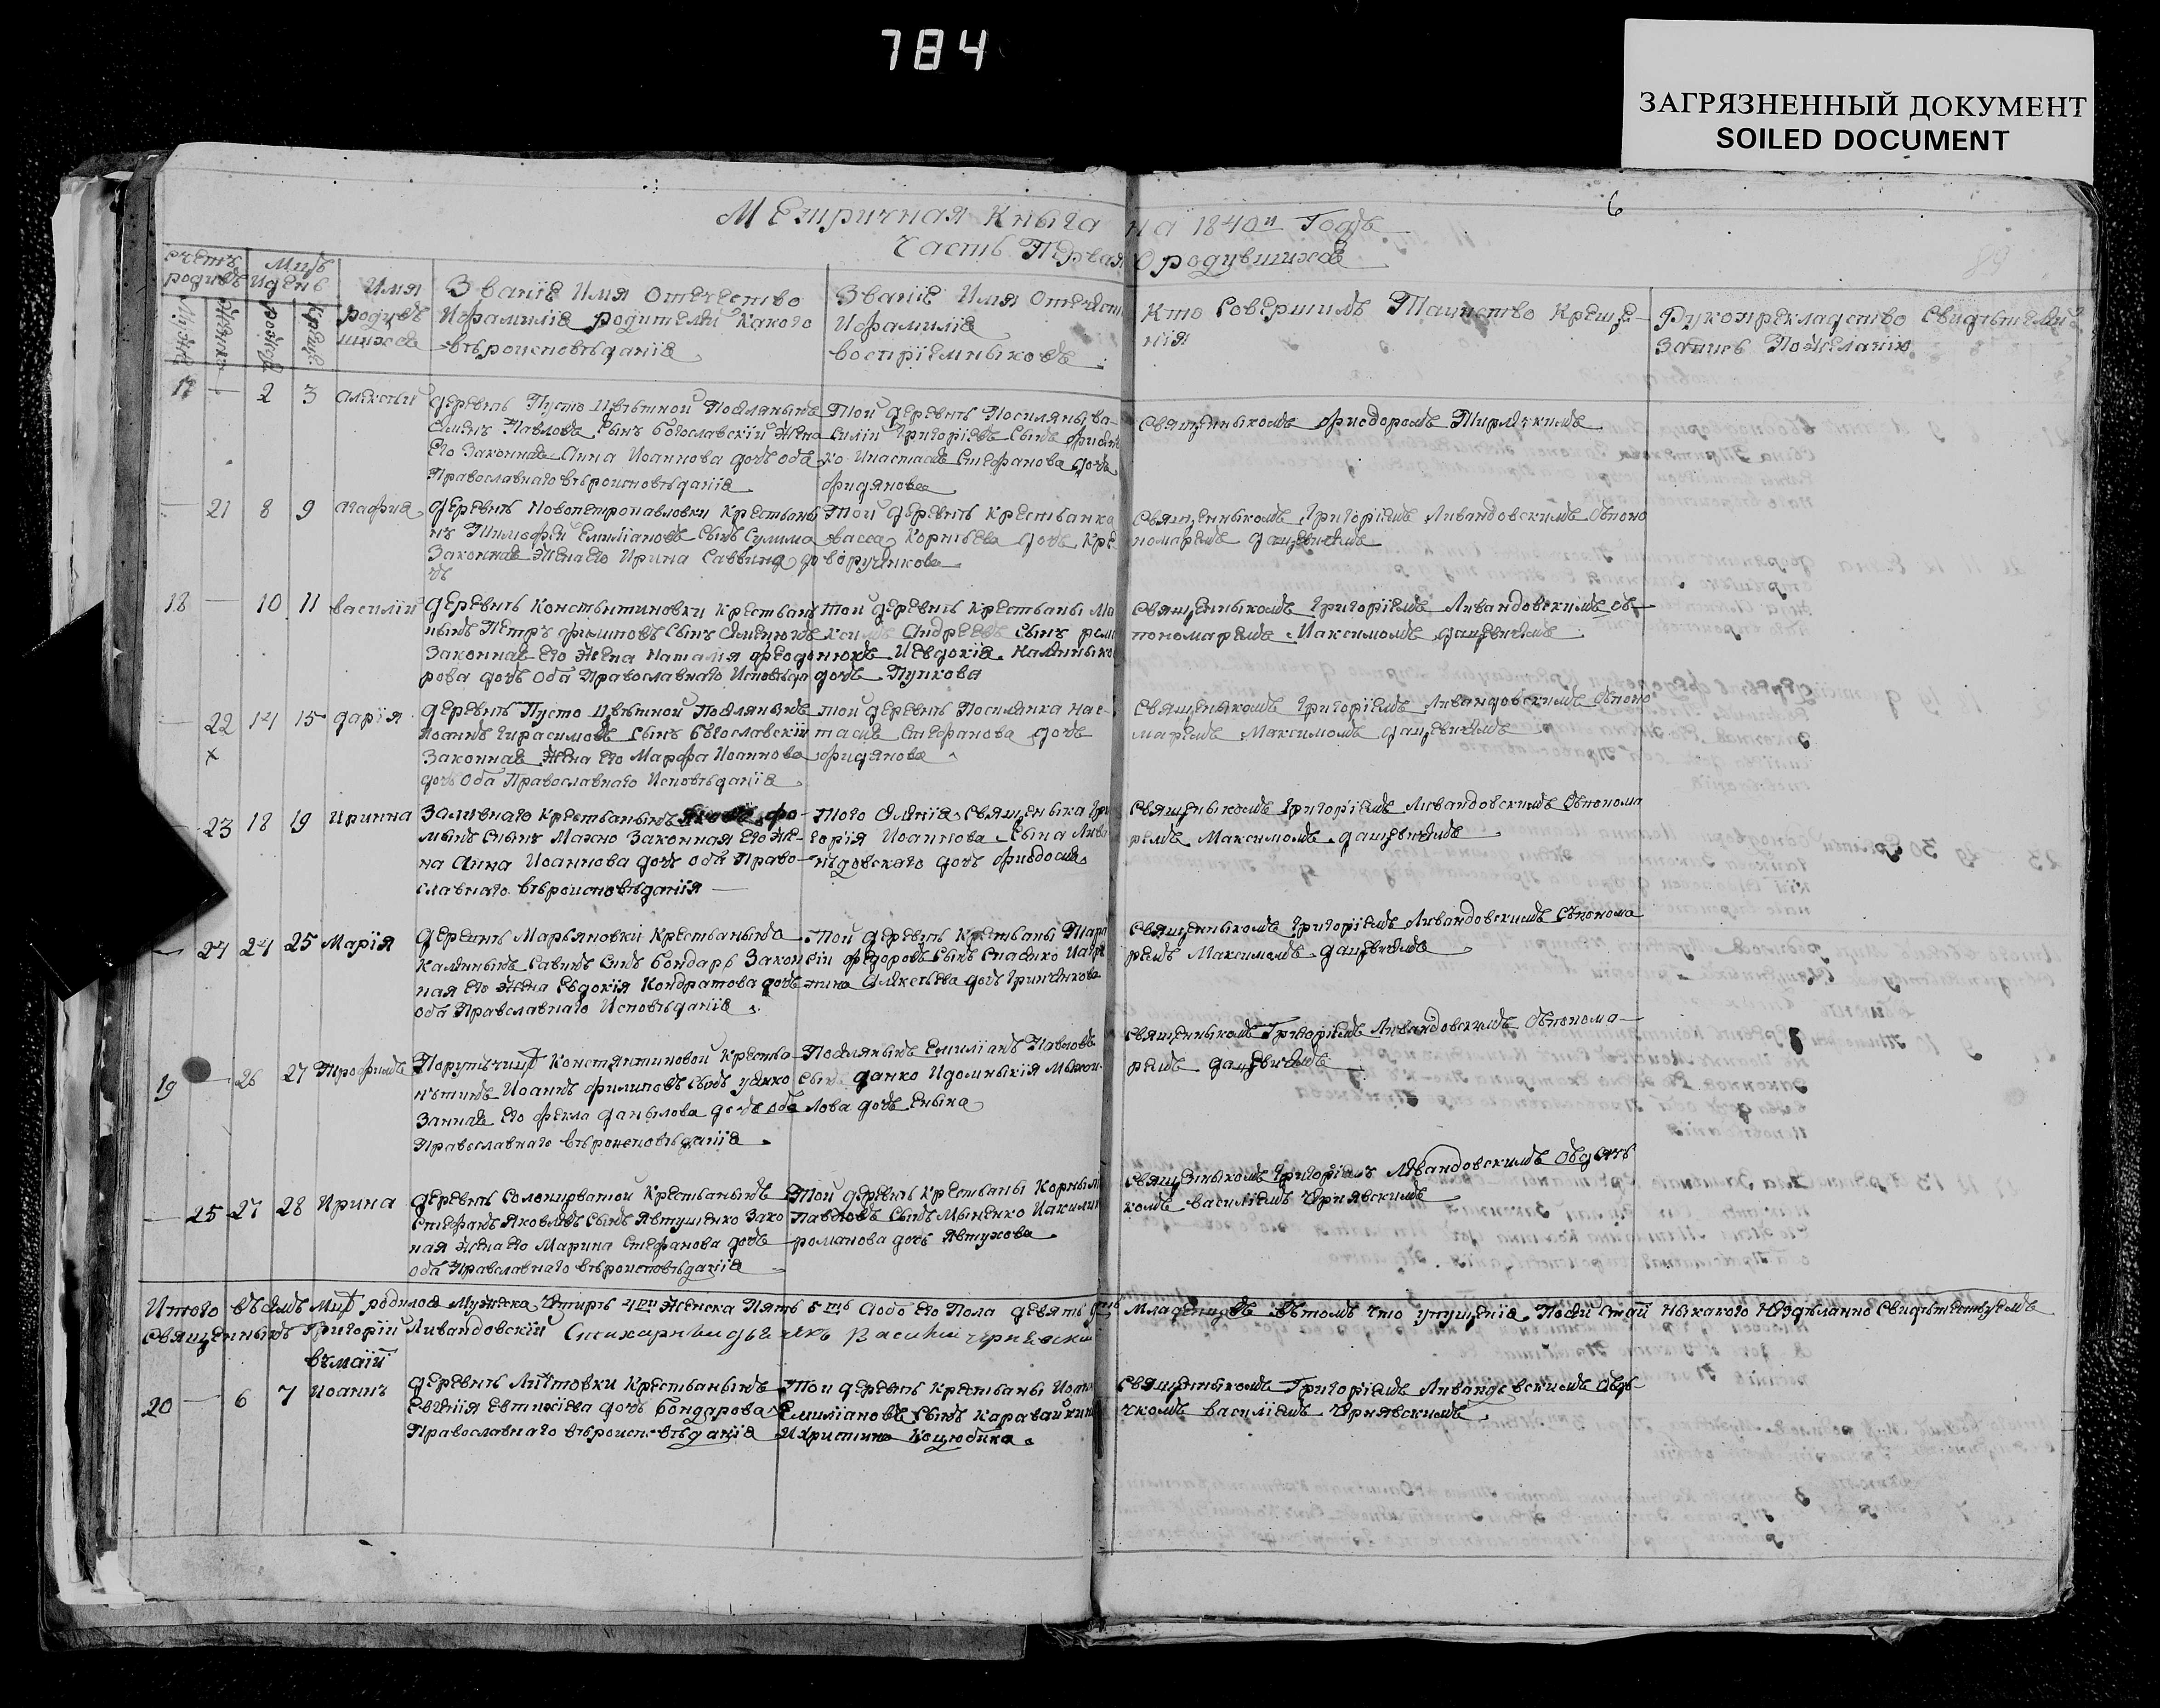 784
ЗАГРЯЗНЕННЫЙ ДОКУМЕНТ
SOILED DOCUMENT
6
Метричная Кныга на 1840й Годъ
Часть Первая О родувшихся
Счетъ родив. Мць И день
Имя родувшихся
Званіе Имя Отечество
И фамилія родителей Какого
вѣроисповѣданія
Званіе Имя Отечест
И фамилія
воспріемныковъ
Кто Совершилъ Таинство Креще-
нія
Рукоприкладство Свидѣтелей
Запись По желанію
17 — 2 3 Алексѣй
деревнѣ Пусто Цвѣтной Поселяныкъ
Семенъ Павловъ Сынъ богославскій Жена
Его Законная Анна Иоаннова дочь оба
Православнаго вѣроисповѣданія
Той деревнѣ Посиляны, ва-
силій Григоріевъ Сынъ
ко Инастасія Стефанова дочь
фидянова
Священыкомъ феодоромъ
— 21 8 9 Агафія
деревнѣ Новопетропавловки Крестьяны
нъ Тимофей Емиліановъ Сынъ Сулима
Законная Жена его Ирина Саввина до
чь
Той деревнѣ Крестьянка
васса Корнѣева дочь Кре
воручкова
Священныкомъ Григоріемъ Ливандовскимъ Съпоно
номаремъ дацевичемъ
18 — 10 11 василій
деревнѣ Констынтиновки Крестьяны
ныкъ Петръ филиповъ Сынъ Семенюкъ
Законная его Жена Наталия феодо
рова дочь оба Православнаго Исповѣда
Той деревнѣ Крестьяны Ма
ксимъ Андреевъ Сынъ рома
нюкъ И Евдокія Каленныко
дочь Пупкова
Священныкомъ Григоріемъ Ливандовскимъ съ
пономаремъ Максимомъ дацевичемъ
— 22 14 15 дарія
х
деревнѣ Пусто Цвѣтной Поселяныкъ
Иоаннъ Гирасимовъ Сынъ богославскій
Законная Жена его Марфа Иоаннова
дочь Оба Православнаго Исповѣданія
той деревнѣ Посилянка нас-
тасія Стефанова дочь
фидянова
Священыкомъ Григоріемъ Ливандовскимъ Съпоно
маремъ Максимомъ дацевичемъ
— 23 18 19 Ирина
Заливнаго Крестьяныкъ Яковъ фо-
мынъ Сынъ Махно Законная его Же-
на Анна Иоаннова дочь оба Право-
славнаго вѣроисповѣданія
Того Селенія Священыка Гри
горія Иоаннова Сына Лива
ндовского дочь феодосія
Священыкомъ Григоріемъ Ливандовскимъ Съпонома
ремъ Максимомъ дацевичемъ
— 24 24 25 Марія
деревнѣ Марьяновки Крестьяныкъ
Калиныкъ Савинъ Сынъ бондарь Закон
ная его Жена Евдокія Кондратова дочь
оба Правславнаго Исповѣданія
Той деревнѣ Крестьяны Тара
сій федоровъ Сынъ Спасенко Иагри
пина Алексѣева дочь Гринчикова
Священыкомъ Григоріемъ Ливандовскимъ Съпонома
ремъ Максимомъ дацевичемъ
19 — 26 27 Трофимъ
Порутьчицѣ Константиновой Крестья
нынъ Иоаннъ филиповъ Сынъ
Его фекла данылова дочь оба
Православнаго вѣроисповѣданія
Поселяныкъ Емиліанъ Павловъ
Сынъ данко Идомныкія Михай-
лова дочь Еныка
Священныкомъ Григоріемъ Ливандовскимъ Съпонома-
ремъ дацевичемъ
— 25 27 28 Ирина
деревнѣ Солонцоватой Крестьяныкъ
Стефанъ Яковлевъ Сынъ Явтушенко Зако
ная Жена его Марина Стефанова дочь
оба Православнаго вѣроисповѣданія
Той деревнѣ Крестьяны Корныл
Павловъ Сынъ Мыненко Иакилин
романова дочь Явтухова
Священыкомъ Григоріемъ Ливандовскимъ Съдьяч
комъ василіемъ Чернявскимъ
Итого въ семъ Мцѣ родилося Мужеска Четири 4ри Женска Пять 5ть Аобоего Пола девять Младенцевъ вътомъ Что упущенія Посей Статьи Ныкакого Нездѣланно Свидѣтельствуемъ
Священныкъ Григорій Ливандовскій дьячекъ Василій Чернявскій
въмаіи
20 — 6 7 Иоаннъ
деревнѣ Лиитовки Крестьяныкъ
Евгенія Евтихіева дочь бондарова
Православнаго вѣроисповѣданія
Той деревнѣ Крестьяны Иоан
Емиліановъ Сынъ Каравайкин
Ихристина Коцюбина
Священыкомъ Григоріемъ Ливандовскимъ Сдь-
чкомъ василіемъ Чернявскимъ